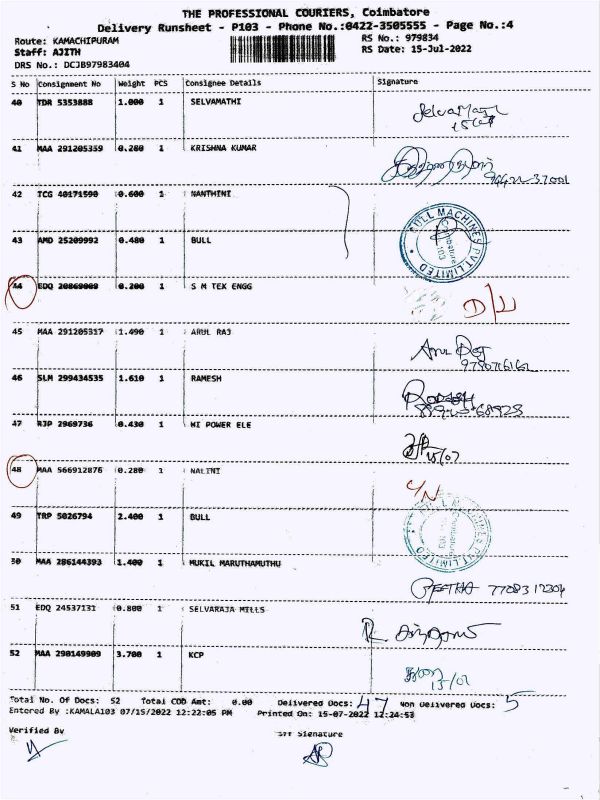 THE PROFESSIONAL COURIERS, Coimbatore
Delivery Runsheet - P103 - Phone No.:0422-3505555 - Page No.:4
Route: KAMACHIPURAM
RS No.: 979834
Staff: AJITH
RS Date: 15-Jul-2022
DRS No.: DCJB97983404
S No Consignment No Weight PCS Consignee Details Signature
40 TDR 5353888 1.000 1 SELVAMATHI
41 MAA 291205359 0.280 1 KRISHNA KUMAR
42 TCG 40171590 0.600 1 NANTHINI
43 AMD 25209992 0.480 1 BULL
BULL MACHINES PVT.LIMITED
Coimbatore 103
44 EDQ 20869009 0.200 1 S M TEK ENGG D/L
45 MAA 291205317 1.490 1 ARUL RAJ Arul Raj
9790716162
46 SLM 299434535 1.610 1 RAMESH
47 RJP 2969736 0.430 1 HI POWER ELE
15/07
48 MAA 566912876 0.280 1 NALINI C/N
49 TRP 5026794 2.400 1 BULL
50 MAA 286144393 1.400 1 MUKIL MARUTHAMUTHU
GEETHA 7708312304
51 EDQ 24537131 0.800 1 SELVARAJA MILLS
52 MAA 290149909 3.700 1 KCP
Total No. Of Docs: 52 Total COD Amt: 0.00 Delivered Docs: 47 Non Delivered Docs: 5
Entered By :KAMALA103 07/15/2022 12:22:05 PM Printed On: 15-07-2022 12:24:53
Verified By Signature